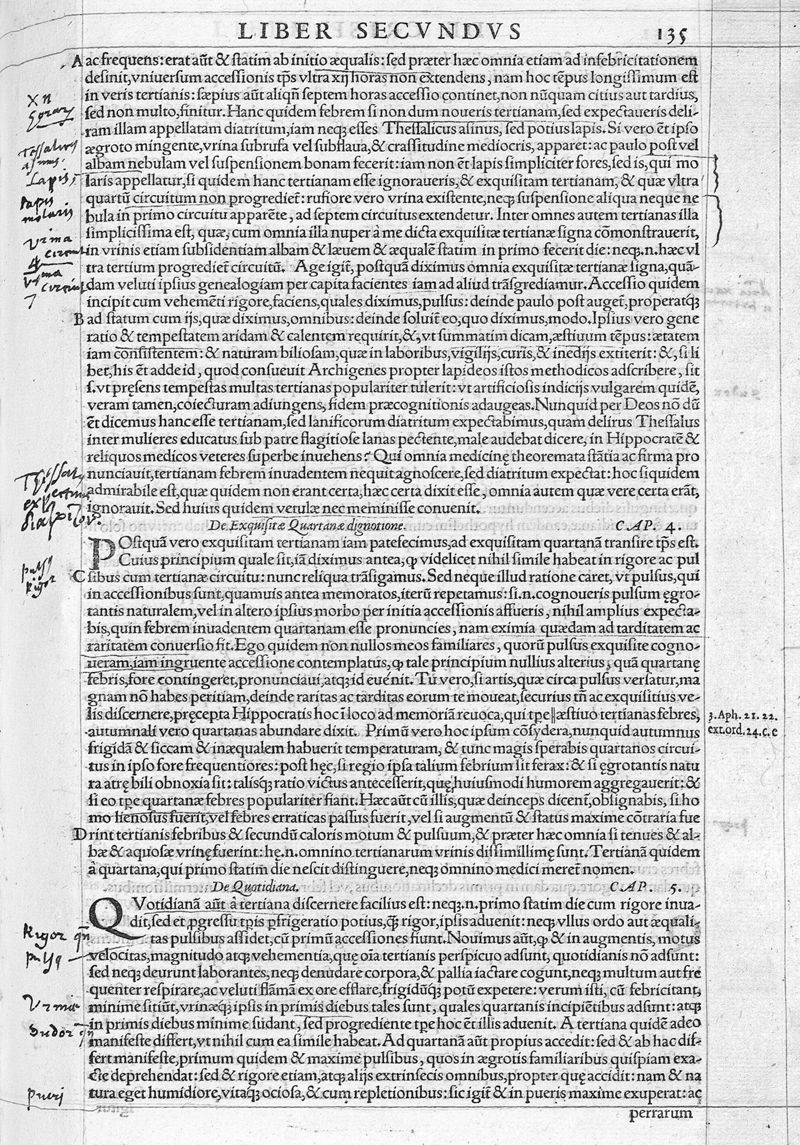 LIBER SECVNDVS 135
A ac frequens: erat aūt & statim ab initio æqualis: sed præter hæc omnia etiam ad infebricitationem
desinit, vniuersum accessionis tp̄s vltra xij horas non extendens, nam hoc tēpus longissimum est
in veris tertianis: sæpius aūt aliqñ septem horas accessio continet, non nūquam citius aut tardius,
sed non multo, finitur. Hanc quidem febrem si non dum noueris tertianam, sed expectaueris deli-
ram illam appellatam diatritum, iam neq; esses Thessalicus asinus, sed potius lapis. Si vero ēt ipso
ægroto mingente, vrina subrufa vel subflaua, & crassitudine mediocris, apparet: ac paulo post vel
albam nebulam vel suspensionem bonam fecerit: iam non ēt lapis simpliciter fores, sed is, qui mo
laris appellatur, si quidem hanc tertianam esse ignoraueris, & exquisitam tertianam, & quæ vltra
quartū circuitum non progrediet: rufiore vero vrina existente, neq; suspensione aliqua neque ne
bula in primo circuitu apparēte, ad septem circuitus extendetur. Inter omnes autem tertianas illa
simplicissima est, quæ, cum omnia illa nuper à me dicta exquisitæ tertianæ signa cōmonstrauerit,
in vrinis etiam subsidentiam albam & læuem & æqualē statim in primo fecerit die: neq;. n. hæc vl
tra tertium progrediet circuitū. Age igit, postquā diximus omnia exquisitæ tertianæ signa, quā-
dam veluti ipsius genealogiam per capita facientes iam ad aliud trāsgrediamur. Accessio quidem
incipit cum vehemēti rigore, faciens, quales diximus, pulsus: deinde paulo post auget, properatq;
B ad statum cum ijs, quæ diximus, omnibus: deinde soluit eo, quo diximus, modo. Ipsius vero gene
ratio & tempestatem aridam & calentem requirit, &, vt summatim dicam, æstiuum tēpus: ætatem
iam consistentem: & naturam biliosam, quæ in laboribus, vigilijs, curis, & inedijs extiterit: &, si li
bet, his ēt adde id, quod consueuit Archigenes propter lapideos istos methodicos adscribere, sit
s. vt præsens tempestas multas tertianas populariter tulerit: vt artificiosis indicijs vulgarem quidē,
veram tamen, cōiecturam adiungens, fidem præcognitionis adaugeas. Nunquid per Deos nō dū
ēt dicemus hanc esse tertianam, sed lanificorum diatritum expectabimus, quam delirus Thessalus
inter mulieres educatus sub patre flagitiose lanas pectente, male audebat dicere, in Hippocratē &
reliquos medicos veteres superbe inuehens? Qui omnia medicinę theoremata stātia ac firma pro
nunciauit, tertianam febrem inuadentem nequit agnoscere, sed diatritum expectat: hoc siquidem
admirabile est, quæ quidem non erant certa, hæc certa dixit esse, omnia autem quæ vere certa erāt,
ignorauit. Sed huius quidem vetulæ nec meminisse conuenit.
De Exquisitæ Quartanæ dignotione. CAP. 4.
POstquā vero exquisitam tertianam iam patefecimus, ad exquisitam quartanā transire tp̄s est.
Cuius principium quale sit, iā diximus antea, q̧ videlicet nihil simile habeat in rigore ac pul
C sibus cum tertianæ circuitu: nunc reliqua trāsigamus. Sed neque illud ratione caret, vt pulsus, qui
in accessionibus sunt, quamuis antea memoratos, iterū repetamus: si. n. cognoueris pulsum ęgro-
tantis naturalem, vel in altero ipsius morbo per initia accessionis affueris, nihil amplius expecta-
bis, quin febrem inuadentem quartanam esse pronuncies, nam eximia quædam ad tarditatem ac
raritatem conuersio fit. Ego quidem non nullos meos familiares, quorū pulsus exquisite cogno-
ueram, iam ingruente accessione contemplatus, q̧ tale principium nullius alterius, quā quartanę
febris, fore contingeret, pronunciaui, atq; id euénit. Tu vero, si artis, quæ circa pulsus versatur, ma
gnam nō habes peritiam, deinde raritas ac tarditas eorum te moueat, securius tñ ac exquisitius ve-
lis discernere, pręcepta Hippocratis hoc ī loco ad memoriā reuoca, qui tpe æstiuo tertianas febres,
autumnali vero quartanas abundare dixit. Primū vero hoc ipsum cōsydera, nunquid autumnus
frigidā & siccam & inæqualem habuerit temperaturam, & tunc magis sperabis quartanos circui-
tus in ipso fore frequentiores: post hęc, si regio ipsa talium febrium sit ferax: & si ęgrotantis natu
ra atrę bili obnoxia sit: talisq; ratio victus antecesserit, quę huiusmodi humorem aggregauerit: &
si eo tpe quartanæ febres populariter fiant. Hæc aūt cū illis, quæ deinceps dicent, obsignabis, si ho
mo lienosus fuerit, vel febres erraticas passus fuerit, vel si augmentū & status maxime cōtraria fue
D rint tertianis febribus & secundū caloris motum & pulsuum, & præter hæc omnia si tenues & al-
bæ & aquosæ vrinę fuerint: hę. n. omnino tertianarum vrinis dissimillimę sunt. Tertianā quidem
à quartana, qui primo statim die nescit distinguere, neq; omnino medici meret nomen.
De Quotidiana. CAP. 5.
QVotidianā aūt à tertiana discernere facilius est: neq;. n. primo statim die cum rigore inua-
dit, sed et ꝓgressu tp̄is pfrigeratio potius, q̄ rigor, ipsis aduenit: neq; vllus ordo aut æquali-
tas pulsibus assidet, cū primū accessiones fiunt. Nouimus aūt, q̧ & in augmentis, motus
velocitas, magnitudo atq; vehementia, quę oīa tertianis perspicuo adsunt, quotidianis nō adsunt:
sed neq; deurunt laborantes, neq; denudare corpora, & pallia iactare cogunt, neq; multum aut fre
quenter respirare, ac veluti flāmā ex ore efflare, frigidūq; potū expetere: verum isti, cū febricitant,
minime sitiūt, vrinæq; ipsis in primis diebus tales sunt, quales quartanis incipiētibus adsunt: atq;
in primis diebus minime sudant, sed progrediente tpe hoc ēt illis aduenit. A tertiana quidē adeo
manifeste differt, vt nihil cum ea simile habeat. Ad quartanā aūt propius accedit: sed & ab hac dif-
fert manifeste, primum quidem & maxime pulsibus, quos in ægrotis familiaribus quispiam exa-
cte deprehendat: sed & rigore etiam, atq; alijs extrinsecis omnibus, propter quę accidit: nam & na
tura eget humidiore, vitaq; ociosa, & cum repletionibus: sic igit & in pueris maxime exuperat: ac
perrarum
3. Aph. 21. 22.
ext. ord. 24. c. e
Lapis
Lapis
molaris
vrina
vrina
Rigor
Vrina
Sudor
pueri